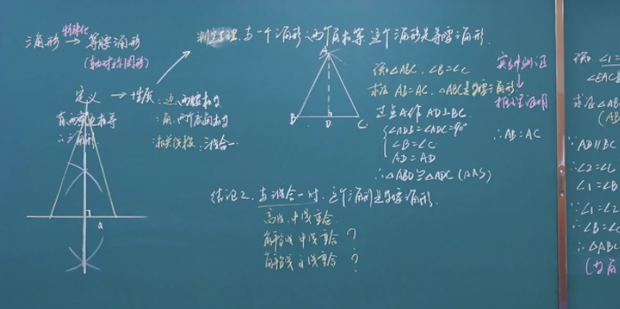 三角形 特殊化 等腰三角形
(轴对称图形)
判定定理: 有一个三角形, 两个角相等, 这个三角形是等腰三角形.
定义 → 性质: 边: 两腰相等
有两边相等
角: 两个底角相等
三角形
相关线段: 三线合一
A
B D C
A
△ABC, ∠B=∠C
AB=AC. △ABC是等腰三角形
过点A作AD⊥BC
∠ADB=∠ADC=90°
∠B=∠C
AD=AD
∴△ABD≌△ADC (AAS)
∴AB=AC
结论2: 有三线合一时, 这个三角形是等腰三角形.
高线, 中线重合
角平分线 中线重合 ?
角平分线 高线重合 ?
∠1=
∠EAC
△AB
(AB
∵AD∥BC
∴∠2=∠C
∠1=∠B
∵∠1=∠2
∴∠B=∠C
∴△ABC